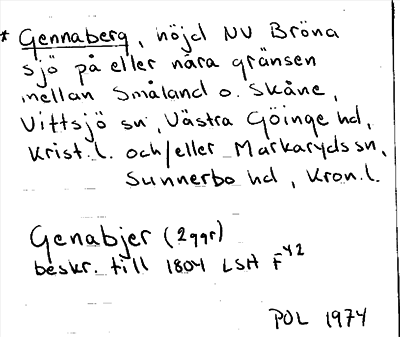 * Gennaberg, höjd NV Bröna
sjö på eller nära gränsen
mellan Småland o. Skåne,
Vittsjö sn, Västra Göinge hd,
Krist. l. och/eller Markaryds sn,
Sunnerbo hd, Kron. l.
Genabjer (2 ggr)
beskr. till 1804 LSA F42
POL 1974